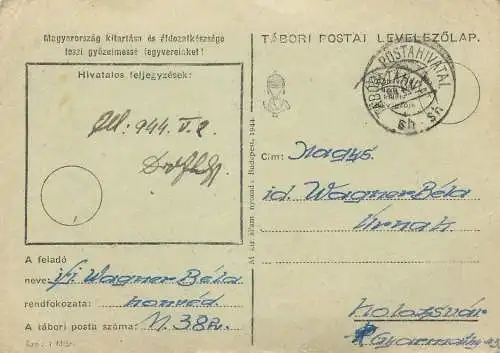 Magyarország kitartása és áldozatkészsége
teszi győzelmessé fegyvereinket!
Hivatalos feljegyzések:
944. V. 2.
A feladó
neve: ifj Wagner Béla
rendfokozata: honvéd
A tábori posta száma: M. 38
TÁBORI POSTAI LEVELEZŐLAP.
TÁBORI POSTAHIVATAL
sh sh
Cím: Nagys.
id. Wagner Béla
Úrnak
Kolozsvár
M. kir. állam. nyomda, Budapest, 1944.